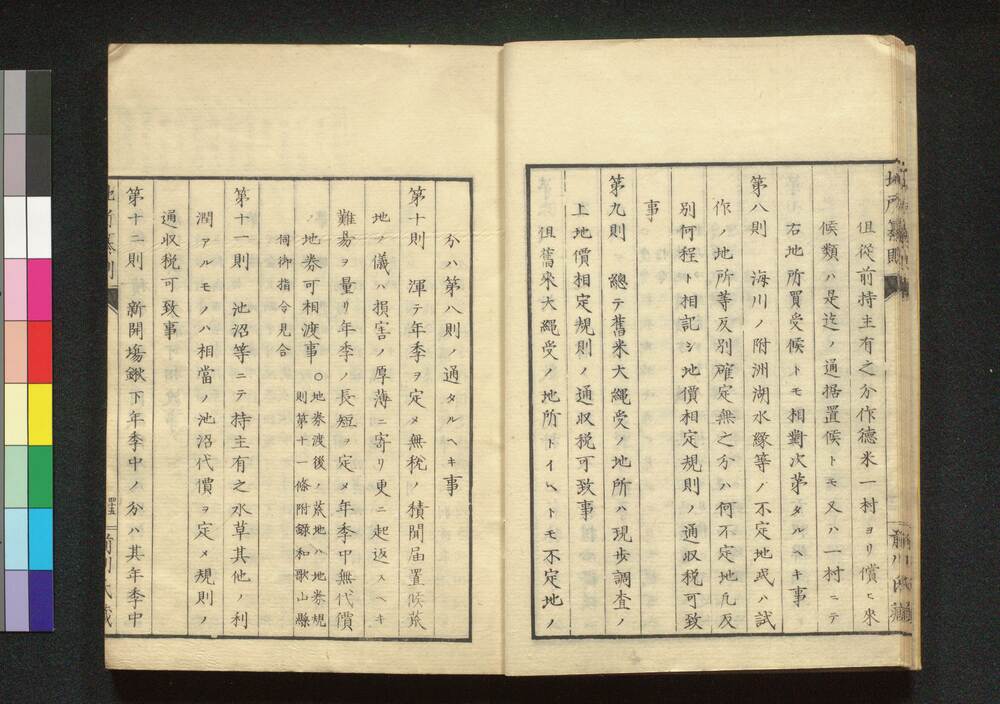 但従前持主有之分作德米一村ヨリ償ヒ来
候類ハ是迄ノ通据置候トモ又ハ一村ニテ
右地所買受候トモ相對次第タルヘキ事
第八則　海川ノ附洲湖水縁等ノ不定地或ハ試
作ノ地所等反別確定無之分ハ何不定地凡反
別何程ト相記シ地價相定規則ノ通収税可致
事
第九則　總テ舊来大縄受ノ地所ハ現歩調査ノ
上地價相定規則ノ通収税可致事
但舊来大縄受ノ地所トイヘトモ不定地ノ
分ハ第八則ノ通タルヘキ事
第十則　渾テ年季ヲ定メ無税ノ積聞届置候荒
地ノ儀ハ損害ノ厚薄ニ寄リ更ニ起返スヘキ
難易ヲ量リ年季ノ長短ヲ定メ年季中無代價
ノ地券可相渡事○地券渡後ノ荒地ハ地券規
則第十一條附録和歌山縣
伺御指令見合
第十一則　池沼等ニテ持主有之水草其他ノ利
潤アルモノハ相當ノ池沼代價ヲ定メ規則ノ
通収税可致事
第十二則　新開塲鍬下年季中ノ分ハ其年季中